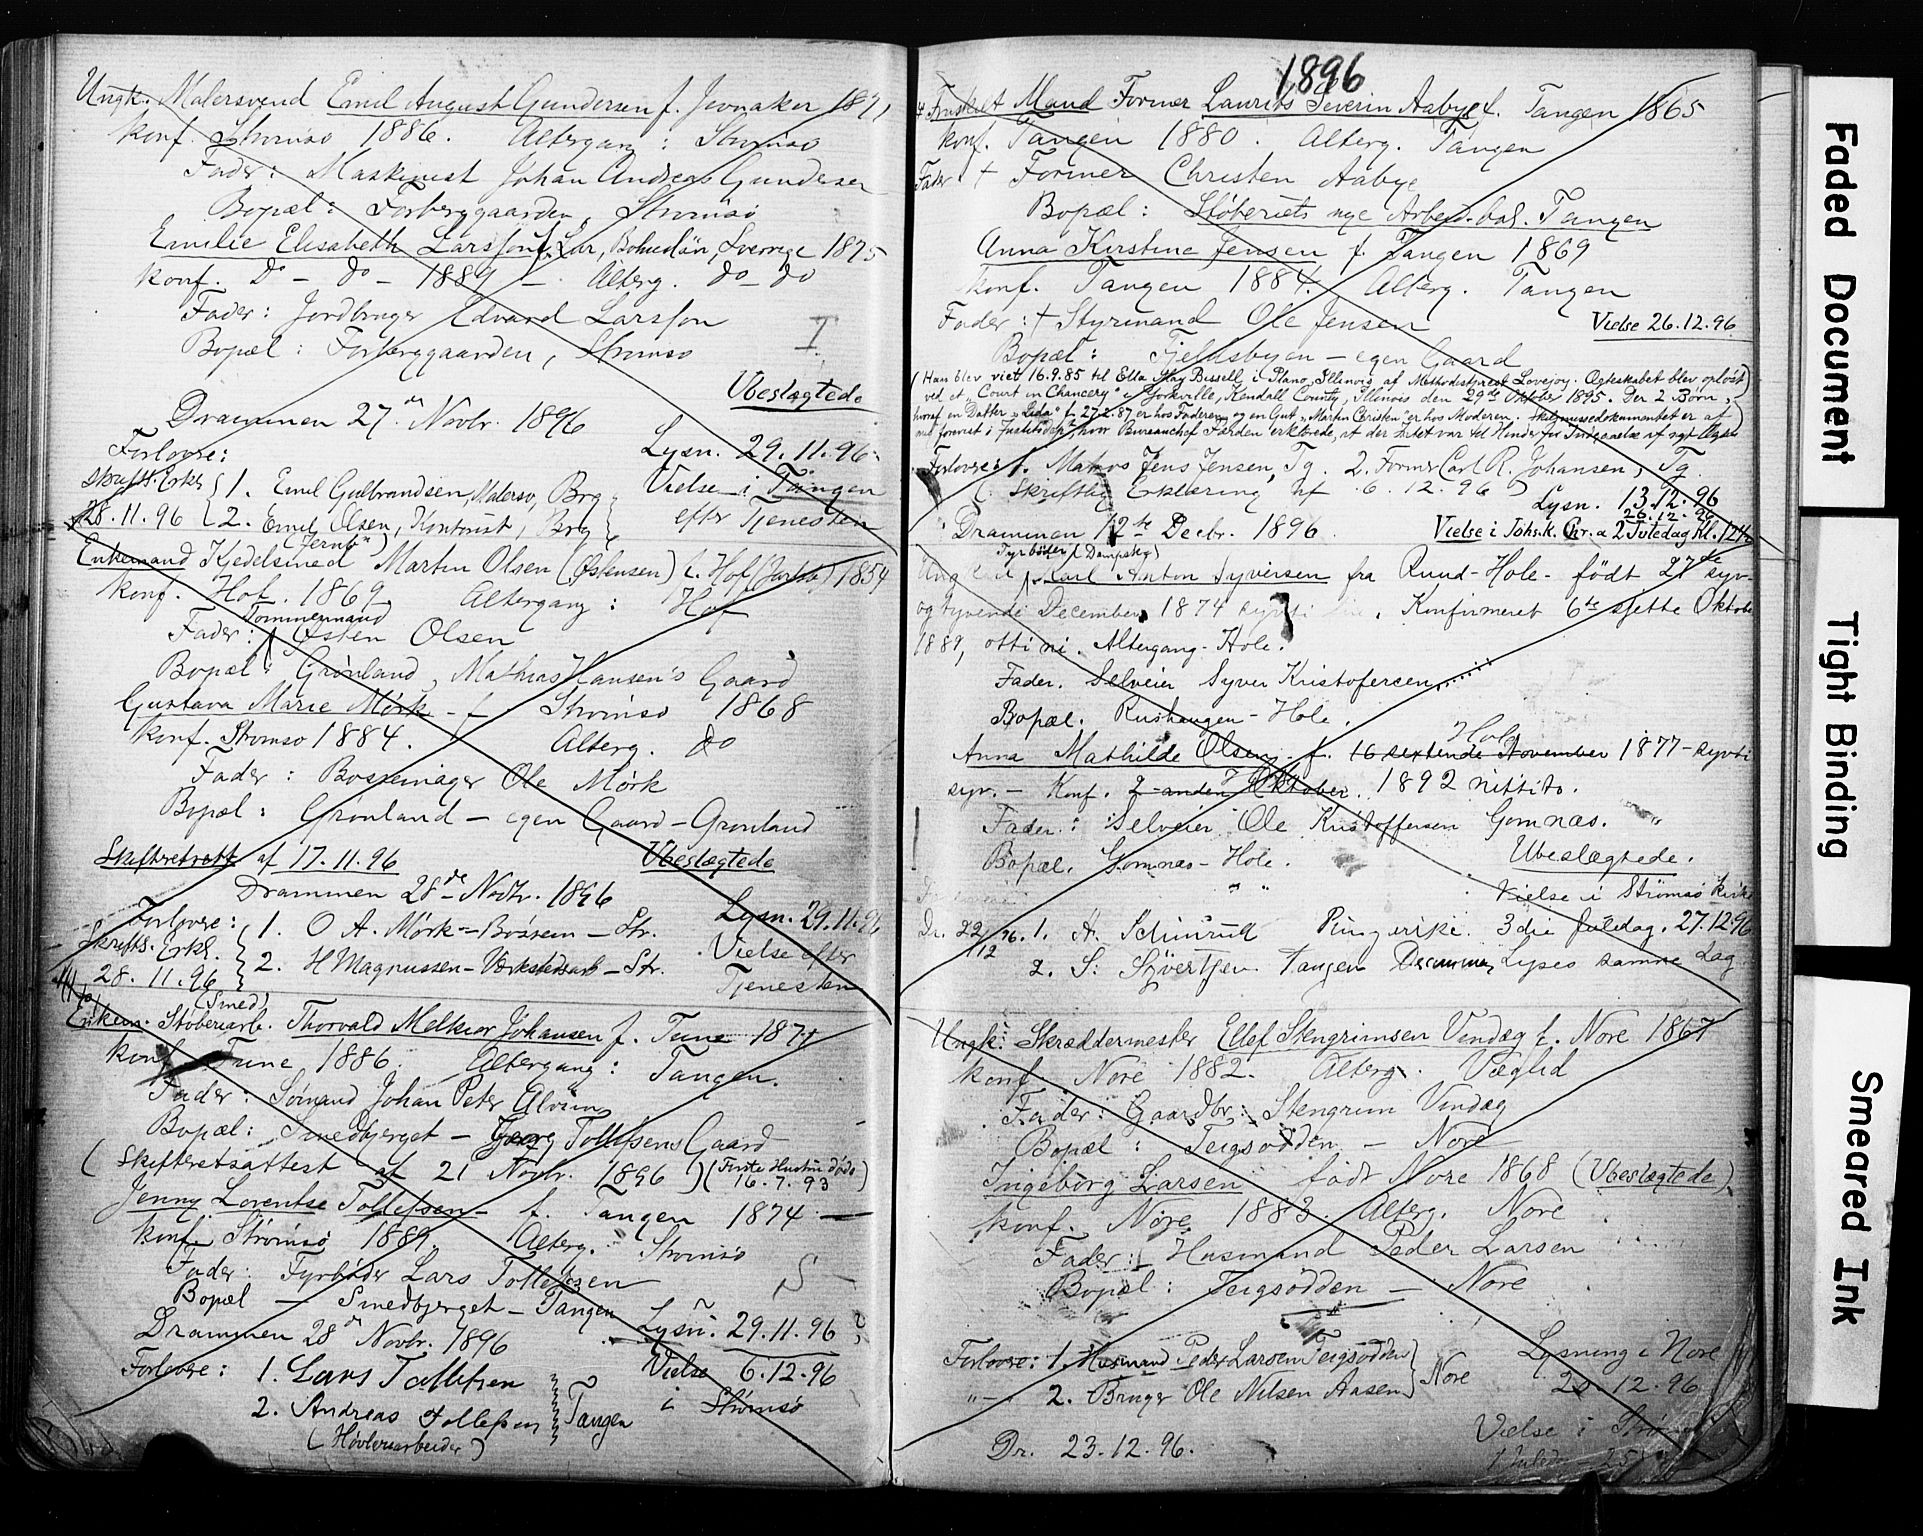 Ungk. Malersvend Emil August Gundersen f. Jevnaker 1871
Konf. Strømsø 1886. Altergang: Strømsø
Fader: Maskinist Johan Andreas Gundersen
Bopæl: Forberggaarden, Strømsø
Emilie Elisabeth Larsson f. Bohuslän, Sverrige 1875
Konf. do - do - 1889 - Alterg. do - do
Fader: Jordbruger Edvard Larsson
Bopæl: Forberggaarden, Strømsø
Ubeslægtede
Drammen 27. Novbr. 1896
Forlovere: Lysn. 29.11.96.
Skriftl. Erkl. 1. Emil Gulbrandsen, Malersv, Brg Vielse i Tangen
28.11.96 2. Emil Olsen, Kontorist, Brg efter Tjenesten
(Jernb.)
Enkemand Kjedelsmed Martin Olsen (Østensen) f. Hof (Jarlsb) 1854
Konf. Hof. 1869 Altergang: Hof
Tømmermand
Fader: Østen Olsen
Bopæl: Grønland, Mathias Hansen's Gaard
Gustava Marie Mørk - f. Strømsø 1868
Konf. Strømsø 1884. Alterg. do
Fader: Bøssemager Ole Mørk
Bopæl: Grønland - egen Gaard - Grønland
Skifteretsatt. af 17.11.96 Ubeslægtede
Drammen 28de Novbr. 1896
Forlovere: 1. O A. Mørk - Bøssem - Str. Lysn. 29.11.96
Skriftl. Erkl. 2. H Magnussen - Værkstedsarb - Str. Vielse efter
28.11.96 Tjenesten
(Smed)
Enkem. Støberiarb. Thorvald Melkior Johansen f. Tune 1871
Konf. Tune 1886. Altergang: Tangen.
Fader: Sømand Johan Peter
Bopæl: Smedbjerget - Georg Tollefsens Gaard
(Skifteretsattest af 21 Novbr. 1896) (Første Hustru døde
16.7.93)
Jenny Lorentse Tollefsen - f. Tangen 1874
Konf. Strømsø 1889. Alterg. Strømsø
Fader: Fyrbøder Lars Tollefsen
Bopæl - Smedbjerget - Tangen
Drammen 28 Novbr. 1896 Lysn. 29.11.96
Forlovere: 1. Lars Tollefsen Vielse 6.12.96
2. Andreas Tollefsen Tangen i Strømsø
(Høvleriarbeider)
1896
Fraskilt Mand Former Laurits Severin Aabye f. Tangen 1865
Konf. Tangen 1880. Alterg. Tangen
Fader † Former Christen Aabye
Bopæl: Støberiets nye Arbeid.bol. Tangen
Anna Kirstine Jensen f. Tangen 1869
Konf. Tangen 1884. Alterg. Tangen
Fader: † Styrmand Ole Jensen Vielse 26.12.96.
Bopæl: Fjeldsbyen - egen Gaard
(Han blev viet 16.9.85 til Ella May Bissell i Plano, Illinois af Methodistprest Lovejoy. Ægteskabet blev opløst
ved et "Court in Chancery" i Yorkville, Kendall County, Illinois den 29de Oktober 1895. Der 2 Børn,
hvoraf en Datter "Leda" f. 27.2.87 er hos Faderen og en Gut "Martin Christen" er hos Moderen. Skilsmissedokumentet er af
mig forevist i Justitsdept, hvor Bureauchef Færden erklærede, at der Intet var til Hinder for Indgaaelse af nyt Ægtesk.
Forlovere: 1. Matros Jens Jensen, Tg. 2. Former Carl R. Johansen, Tg.
(Skriftlig Erklæring af 6.12.96) Lysn. 13.12.96
26.12.96
Drammen 12te Decbr. 1896. Vielse i Johs.k. Chr.a 2 Juledag Kl. 12½
Fyrbøder (Dampskg)
Ungkarl Karl Anton Syversen fra Ruud - Hole - født 27de syv-
og tyvende December 1874 Konfirmeret 6te sjette Oktober
1889, otti ni. Altergang - Hole.
Fader. Selveier Syver Kristofersen.
Bopæl. Rushaugen - Hole.
Hole
Anna Mathilde Olsen, f. 16 sextende November 1877 - sytti
syv. - Konf. 2 anden Oktober. 1892 nittito.
Fader: Selveier Ole Kristoffersen Gomnæs.
Bopæl. Gomnæs - Hole. Ubeslægtede.
Vielse i Strømsø Kirke
Dr. 22/12 96. 1. A. Ringerike. 3die Juledag. 27.12.96
2. S. Syvertsen Tangen Drammen Lyses samme Dag
Ungk: Skræddermester Ellef Stengrimsen Vindæg f. Nore 1867
Konf. Nore 1882. Alterg. Væglid
Fader: Gaardbr: Stengrim Vindæg
Bopæl: Teigsødden - Nore
Ingeborg Larsen født Nore 1868 (Ubeslægtede)
Konf. Nore 1883. Alterg. Nore
Fader: Husmand Peder Larsen
Bopæl: Teigsødden - Nore
Forlovere: 1. Husmand Peder Larsen Teigsødden Nore Lysning i Nore
" - 2. Bruger Ole Nilsen Aasen 20.12.96
Vielse i Strømsø
Dr. 23.12.96.
Faded Document
Tight Binding
Smeared Ink